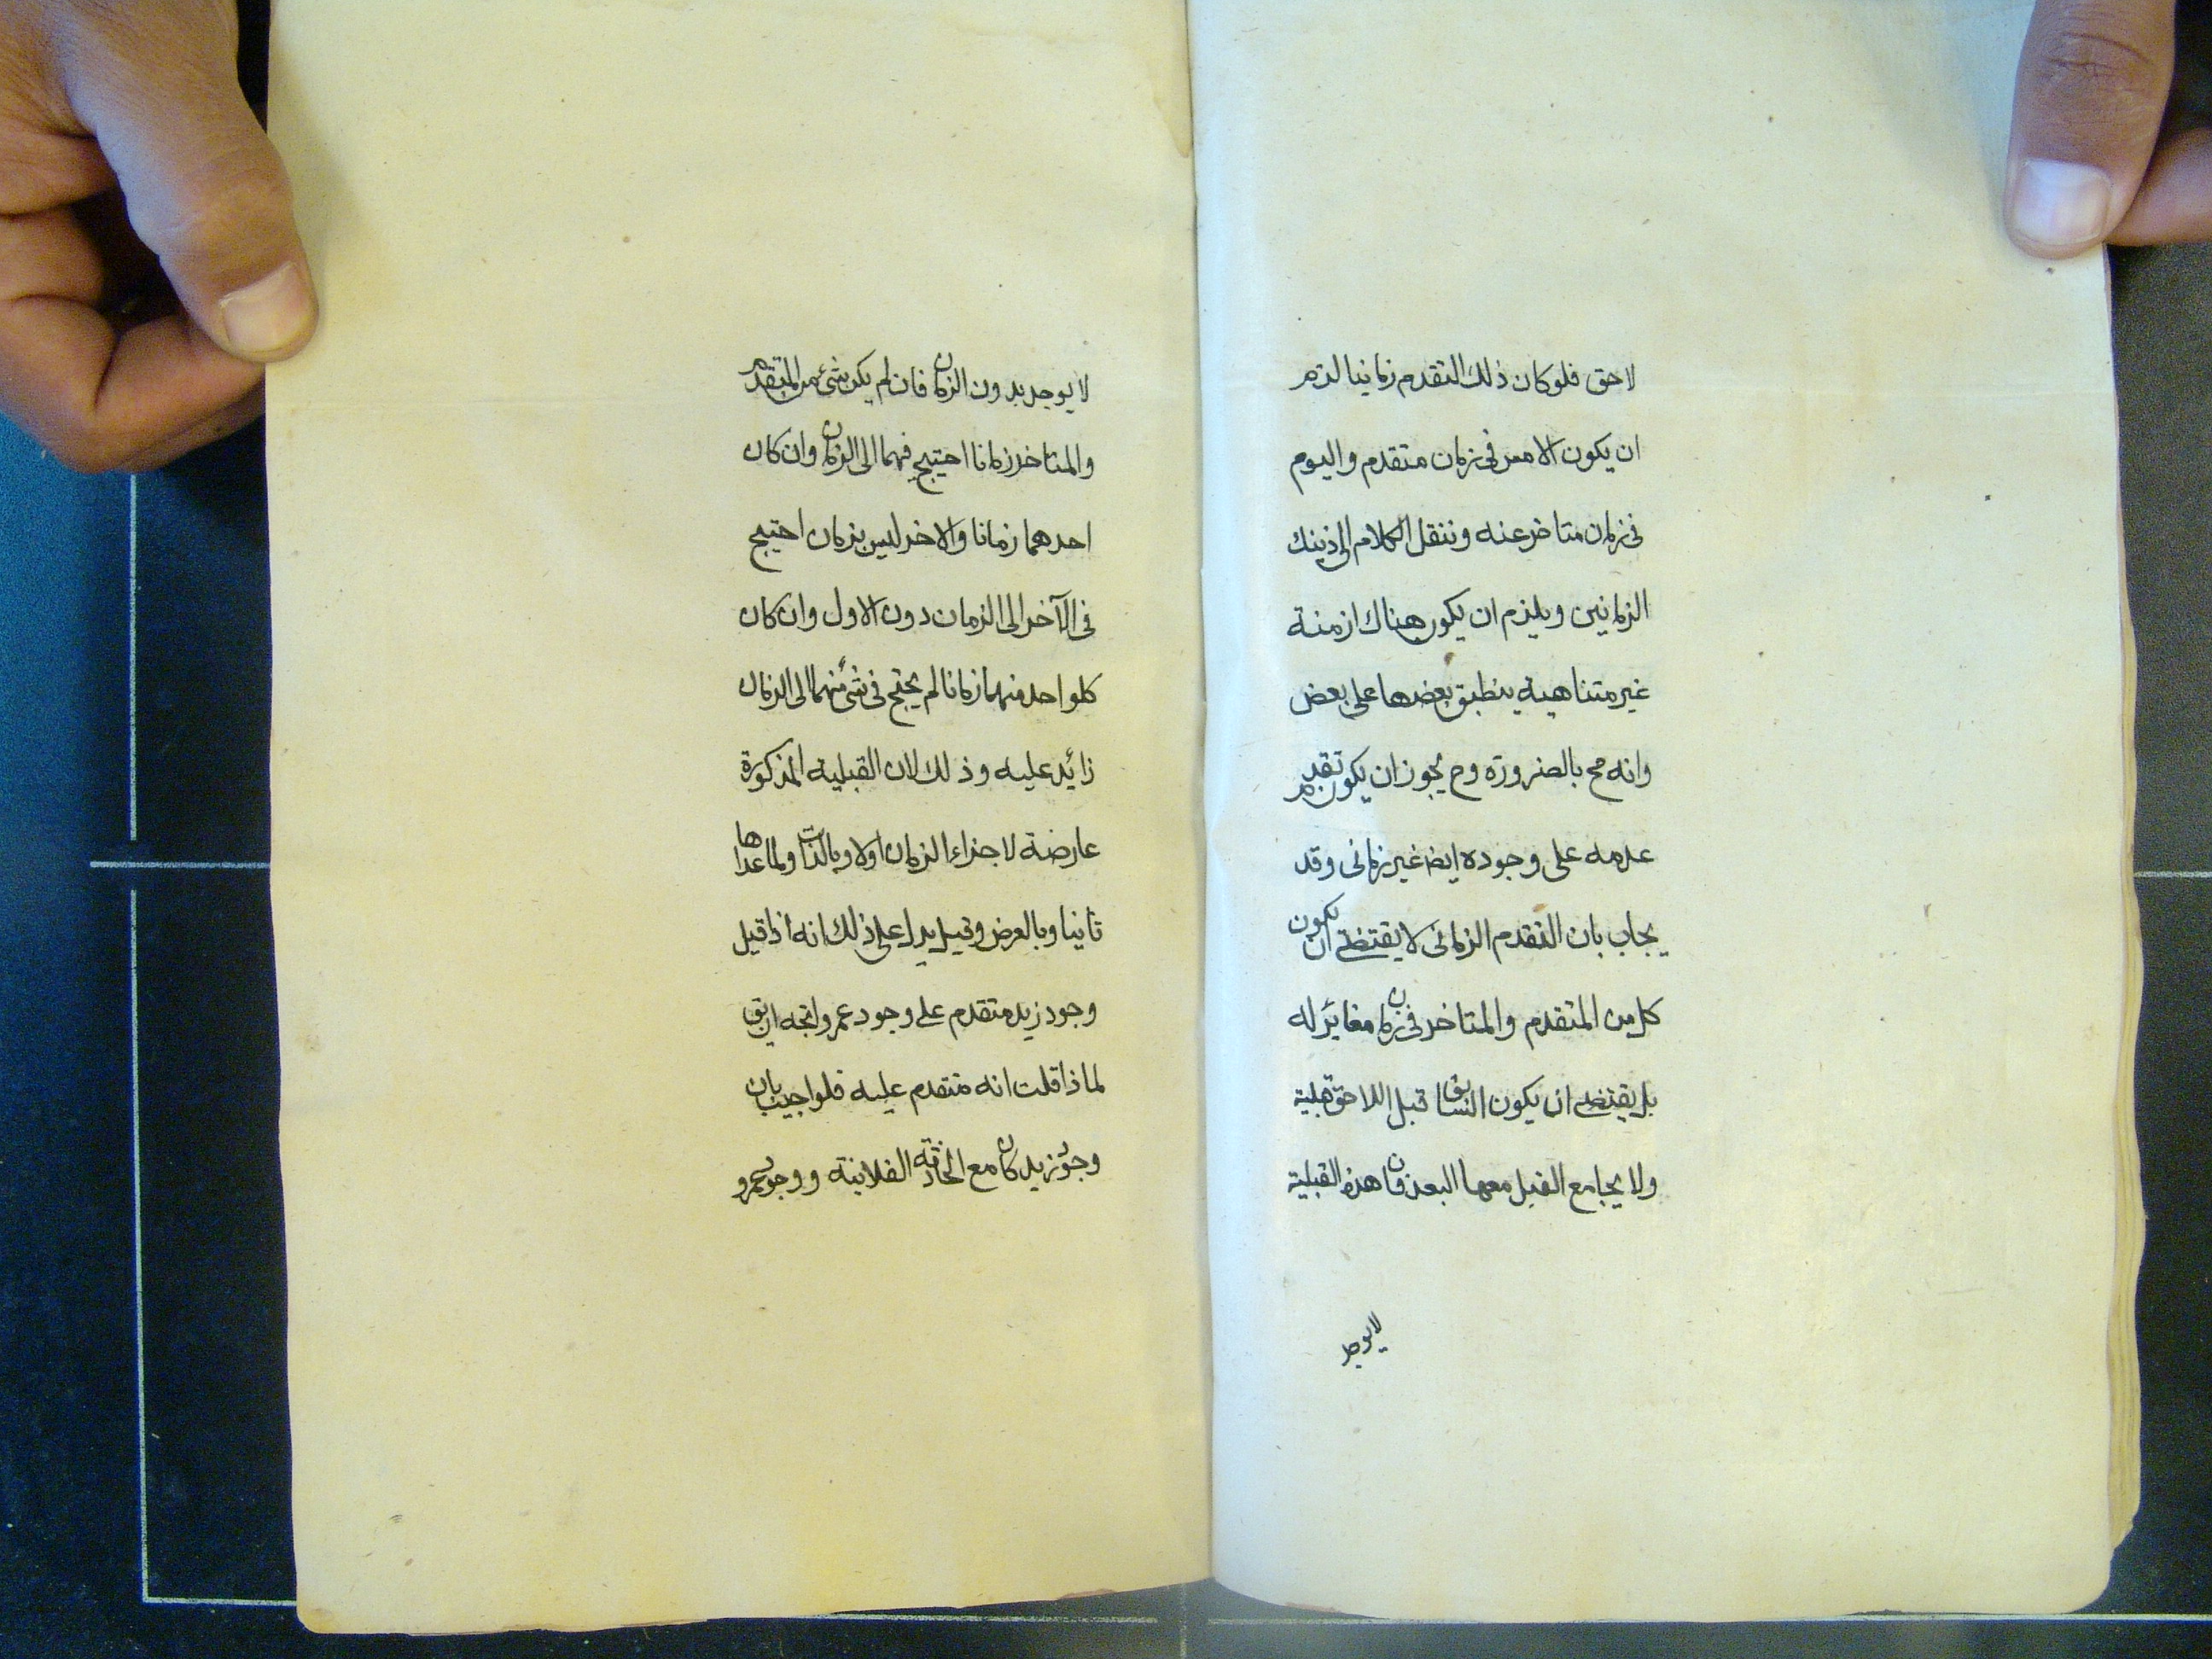 لاحق فلو كان ذلك التقدم زمانيا لزم
ان يكون الامس فى زمان متقدم واليوم
فى زمان متاخر عنه وننقل الكلام الى ذينك
الزمانين ويلزم ان يكون هناك ازمنة
غير متناهية ينطبق بعضها على بعض
وانه مح بالضرورة وح يجوز ان يكون تقدم
عدمه على وجوده ايض غير زمانى وقد
يجاب بان التقدم الزمانى لا يقتضے ان يكون
كل من المتقدم والمتاخر فى زمان مغائر له
بل يقتضے ان يكون السابق قبل اللاحق قبلية
ولا يجامع القبل معها البعد فان هذه القبلية
لا يوجد
لا يوجد بدون الزمان فان لم يكن شئ من المتقدم
والمتاخر زمانا احتيج فيهما الى الزمان وان كان
احدهما زمانا والاخر ليس بزمان احتيج
فى الآخر الى الزمان دون الاول وان كان
كلواحد منهما زمانا لم يحتج فى شئ منهما الى الزمان
زائد عليه وذلك لان القبلية المذكورة
عارضة لاجزاء الزمان اولا وبالذات ولما عداها
ثانيا وبالعرض وقيل يدل على ذلك انه اذا قيل
وجود زيد متقدم على وجود عمرو اتجه ان يق
لماذا قلت انه متقدم عليه فلو اجيب بان
وجود زيد كان مع الحادثة الفلانية ووجود عمرو